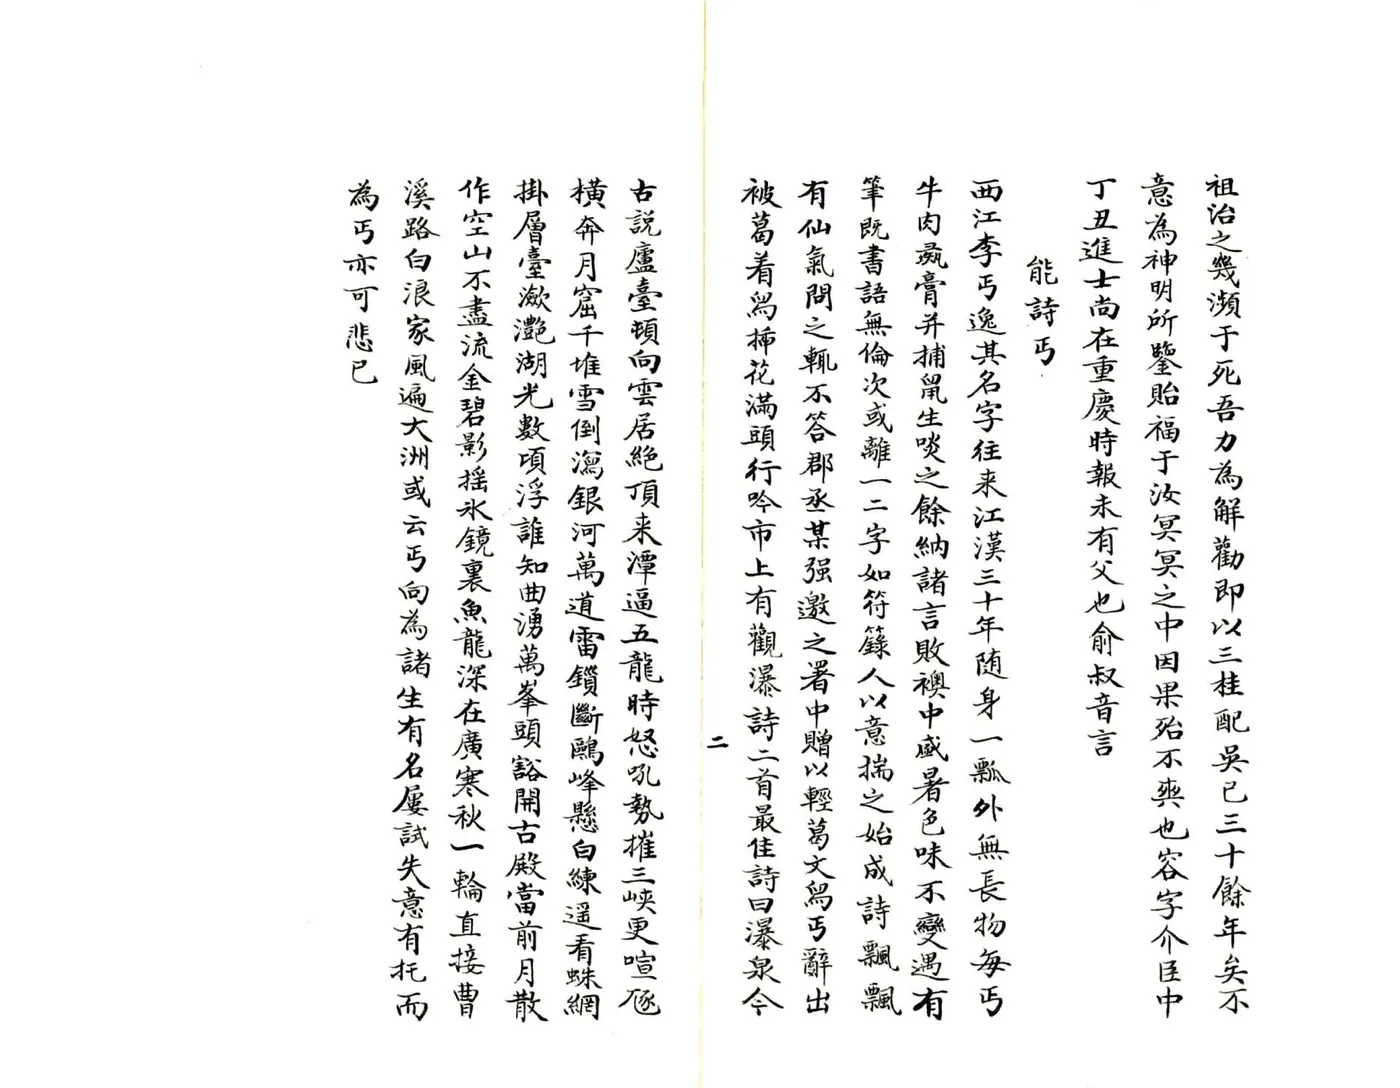 祖治之幾瀕于死吾力為解勸即以三桂配吳已三十餘年矣不
意為神明所鑒貽福于汝冥冥之中因果殆不爽也容字介臣中
丁丑進士尚在重慶時報未有父也俞叔音言
能詩丐
西江李丐逸其名字往来江漢三十年随身一瓢外無長物每丐
牛肉彘膏并捕鼠生啖之餘納諸言敗襖中盛暑色味不變遇有
筆既書語無倫次或離一二字如符籙人以意揣之始成詩飄飄
有仙氣問之輒不答郡丞某强邀之署中贈以輕葛文舄丐辭出
被葛着舄挿花滿頭行吟市上有觀瀑詩二首最佳詩曰瀑泉今
二
古説廬臺頓向雲居絶頂来潭逼五龍時怒吼勢摧三峽更喧豗
橫奔月窟千堆雪倒瀉銀河萬道雷鎖斷鷗峰懸白練遥看蛛網
掛層臺瀲灔湖光數頃浮誰知曲湧萬峯頭豁開古殿當前月散
作空山不盡流金碧影摇氷鏡裏魚龍深在廣寒秋一輪直接曹
溪路白浪家風遍大洲或云丐向為諸生有名屢試失意有托而
為丐亦可悲已